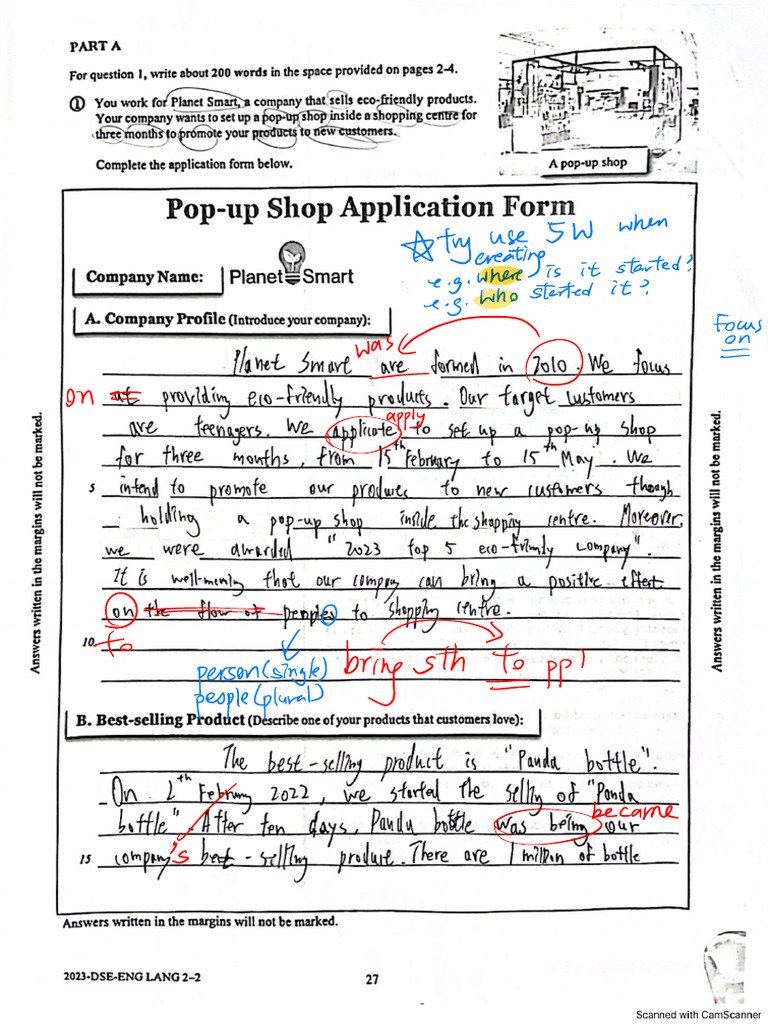 PART A
For question 1, write about 200 words in the space provided on pages 2-4.
① You work for Planet Smart, a company that sells eco-friendly products.
Your company wants to set up a pop-up shop inside a shopping centre for
three months to promote your products to new customers.
Complete the application form below.
A pop-up shop
Pop-up Shop Application Form
☆ try use 5W when
creating
e.g. where is it started?
e.g. who started it?
Company Name:
Planet Smart
A. Company Profile (Introduce your company):
Focus
on
was
Planet Smart are formed in 2010. We focus
on at providing eco-friendly products. Our target customers
apply
are teenagers. We applicate to set up a pop-up shop
for three months, from 15th February to 15th May. We
5 intend to promote our produces to new customers though
holding a pop-up shop inside the shopping centre. Moreover,
we were awarded "2023 top 5 eco-friendly company".
It is well-mening that our company can bring a positive effect
on the flow of peoples to shopping centre.
10 to
person(single)
people(plural)
bring sth to ppl
B. Best-selling Product (Describe one of your products that customers love):
The best-selling product is "Panda bottle".
On 2th February 2022, we started the selling of "Panda
became
bottle". After ten days, Panda bottle was being our
15 company's best-selling produce. There are 1 million of bottle
Answers written in the margins will not be marked.
Answers written in the margins will not be marked.
Answers written in the margins will not be marked.
2023-DSE-ENG LANG 2-2
27
Scanned with CamScanner